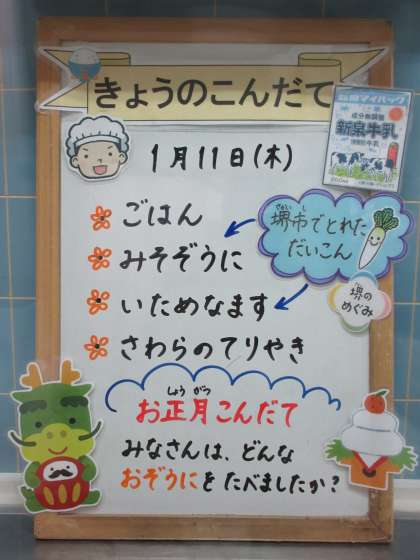 きょうのこんだて
1月11日(木)
ごはん
みそぞうに
いためなます
さわらのてりやき
さかいし
堺市でとれた
だいこん
堺の
めぐみ
新泉牛乳
しょうがつ
お正月こんだて
みなさんは、どんな
おぞうにをたべましたか?